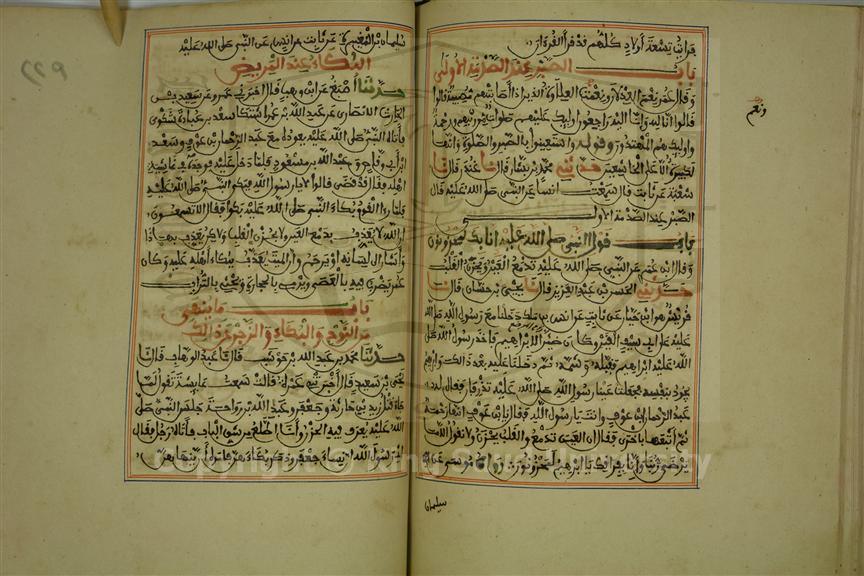 فرأيت تسعة أولاد كلهم قد قرأ القرءان
باب الصبر عند الصدمة الأولى
وقال عمر نعم العدلان ونعمت العلاوة الذين إذا أصابتهم مصيبة قالوا
قالوا إنا لله وإنا إليه راجعون أوليك عليهم صلوات من ربهم ورحمة
وأوليك هم المهتدون وقوله واستعينوا بالصبر والصلوة وإنها
لكبيرة إلا على الخاشعين حدثني محمد بن بشار قال نا غندر قال نا
شعبة عن ثابت قال سمعت أنسا عن النبي صلى الله عليه قال
الصبر عند الصدمة الأولى
باب قول النبي صلى الله عليه إنا بك لمحزونون
وقال ابن عمر عن النبي صلى الله عليه تدمع العين ويحزن القلب
حدثني الحسن بن عبد العزيز قال نا يحيى بن حسان قال نا
قريش هو ابن حيان عن ثابت عن أنس بن ملك دخلنا مع رسول الله صلى الله
عليه على أبي سيف القين وكان ظئرا لإبراهيم فأخذ رسول الله صلى
الله عليه إبراهيم فقبله وشمه ثم دخلنا عليه بعد ذلك وإبراهيم
يجود بنفسه فجعلت عينا رسول الله صلى الله عليه تذرفان فقال له
عبد الرحمان بن عوف وأنت يا رسول الله فقال يا بن عوف إنها رحمة
ثم أتبعها بأخرى فقال إن العين تدمع والقلب يحزن ولا نقول إلا ما
يرضى ربنا وإنا بفراقك يا إبراهيم لمحزونون رواه موسى عن
سليمان
ونعم
سليمان بن المغيرة عن ثابت عن أنس عن النبي صلى الله عليه
البكاء عند المريض
حدثنا أصبغ عن ابن وهب قال أخبرني عمرو عن سعيد بن
الحارث الأنصاري عن عبد الله بن عمر اشتكى سعد بن عبادة شكوى
فأتاه النبي صلى الله عليه يعوده مع عبد الرحمان بن عوف وسعد
ابن أبي وقاص وعبد الله بن مسعود فلما دخل عليه فوجده في غاشية
أهله فقال قد قضى قالوا لا يا رسول الله فبكى النبي صلى الله عليه
فلما رأى القوم بكاء النبي صلى الله عليه بكوا فقال ألا تسمعون
إن الله لا يعذب بدمع العين ولا بحزن القلب ولكن يعذب بهذا
وأشار إلى لسانه أو يرحم وإن الميت يعذب ببكاء أهله عليه وكان
عمر يضرب فيه بالعصى ويرمي بالحجارة ويحثي بالتراب
باب ما ينهى
من النوح والبكاء والزجر عن ذلك
حدثنا محمد بن عبد الله بن حوشب قال نا عبد الوهاب قال نا
يحيى بن سعيد قال أخبرتني عمرة قالت سمعت عايشة تقول لما
جاء قتل زيد بن حارثة وجعفر وعبد الله بن رواحة جلس النبي صلى
الله عليه يعرف فيه الحزن وأنا أطلع من شق الباب فأتاه رجل فقال
أي رسول الله إن نساء جعفر وذكر بكاءهن فأمره أن ينهاهن
٢٢٩